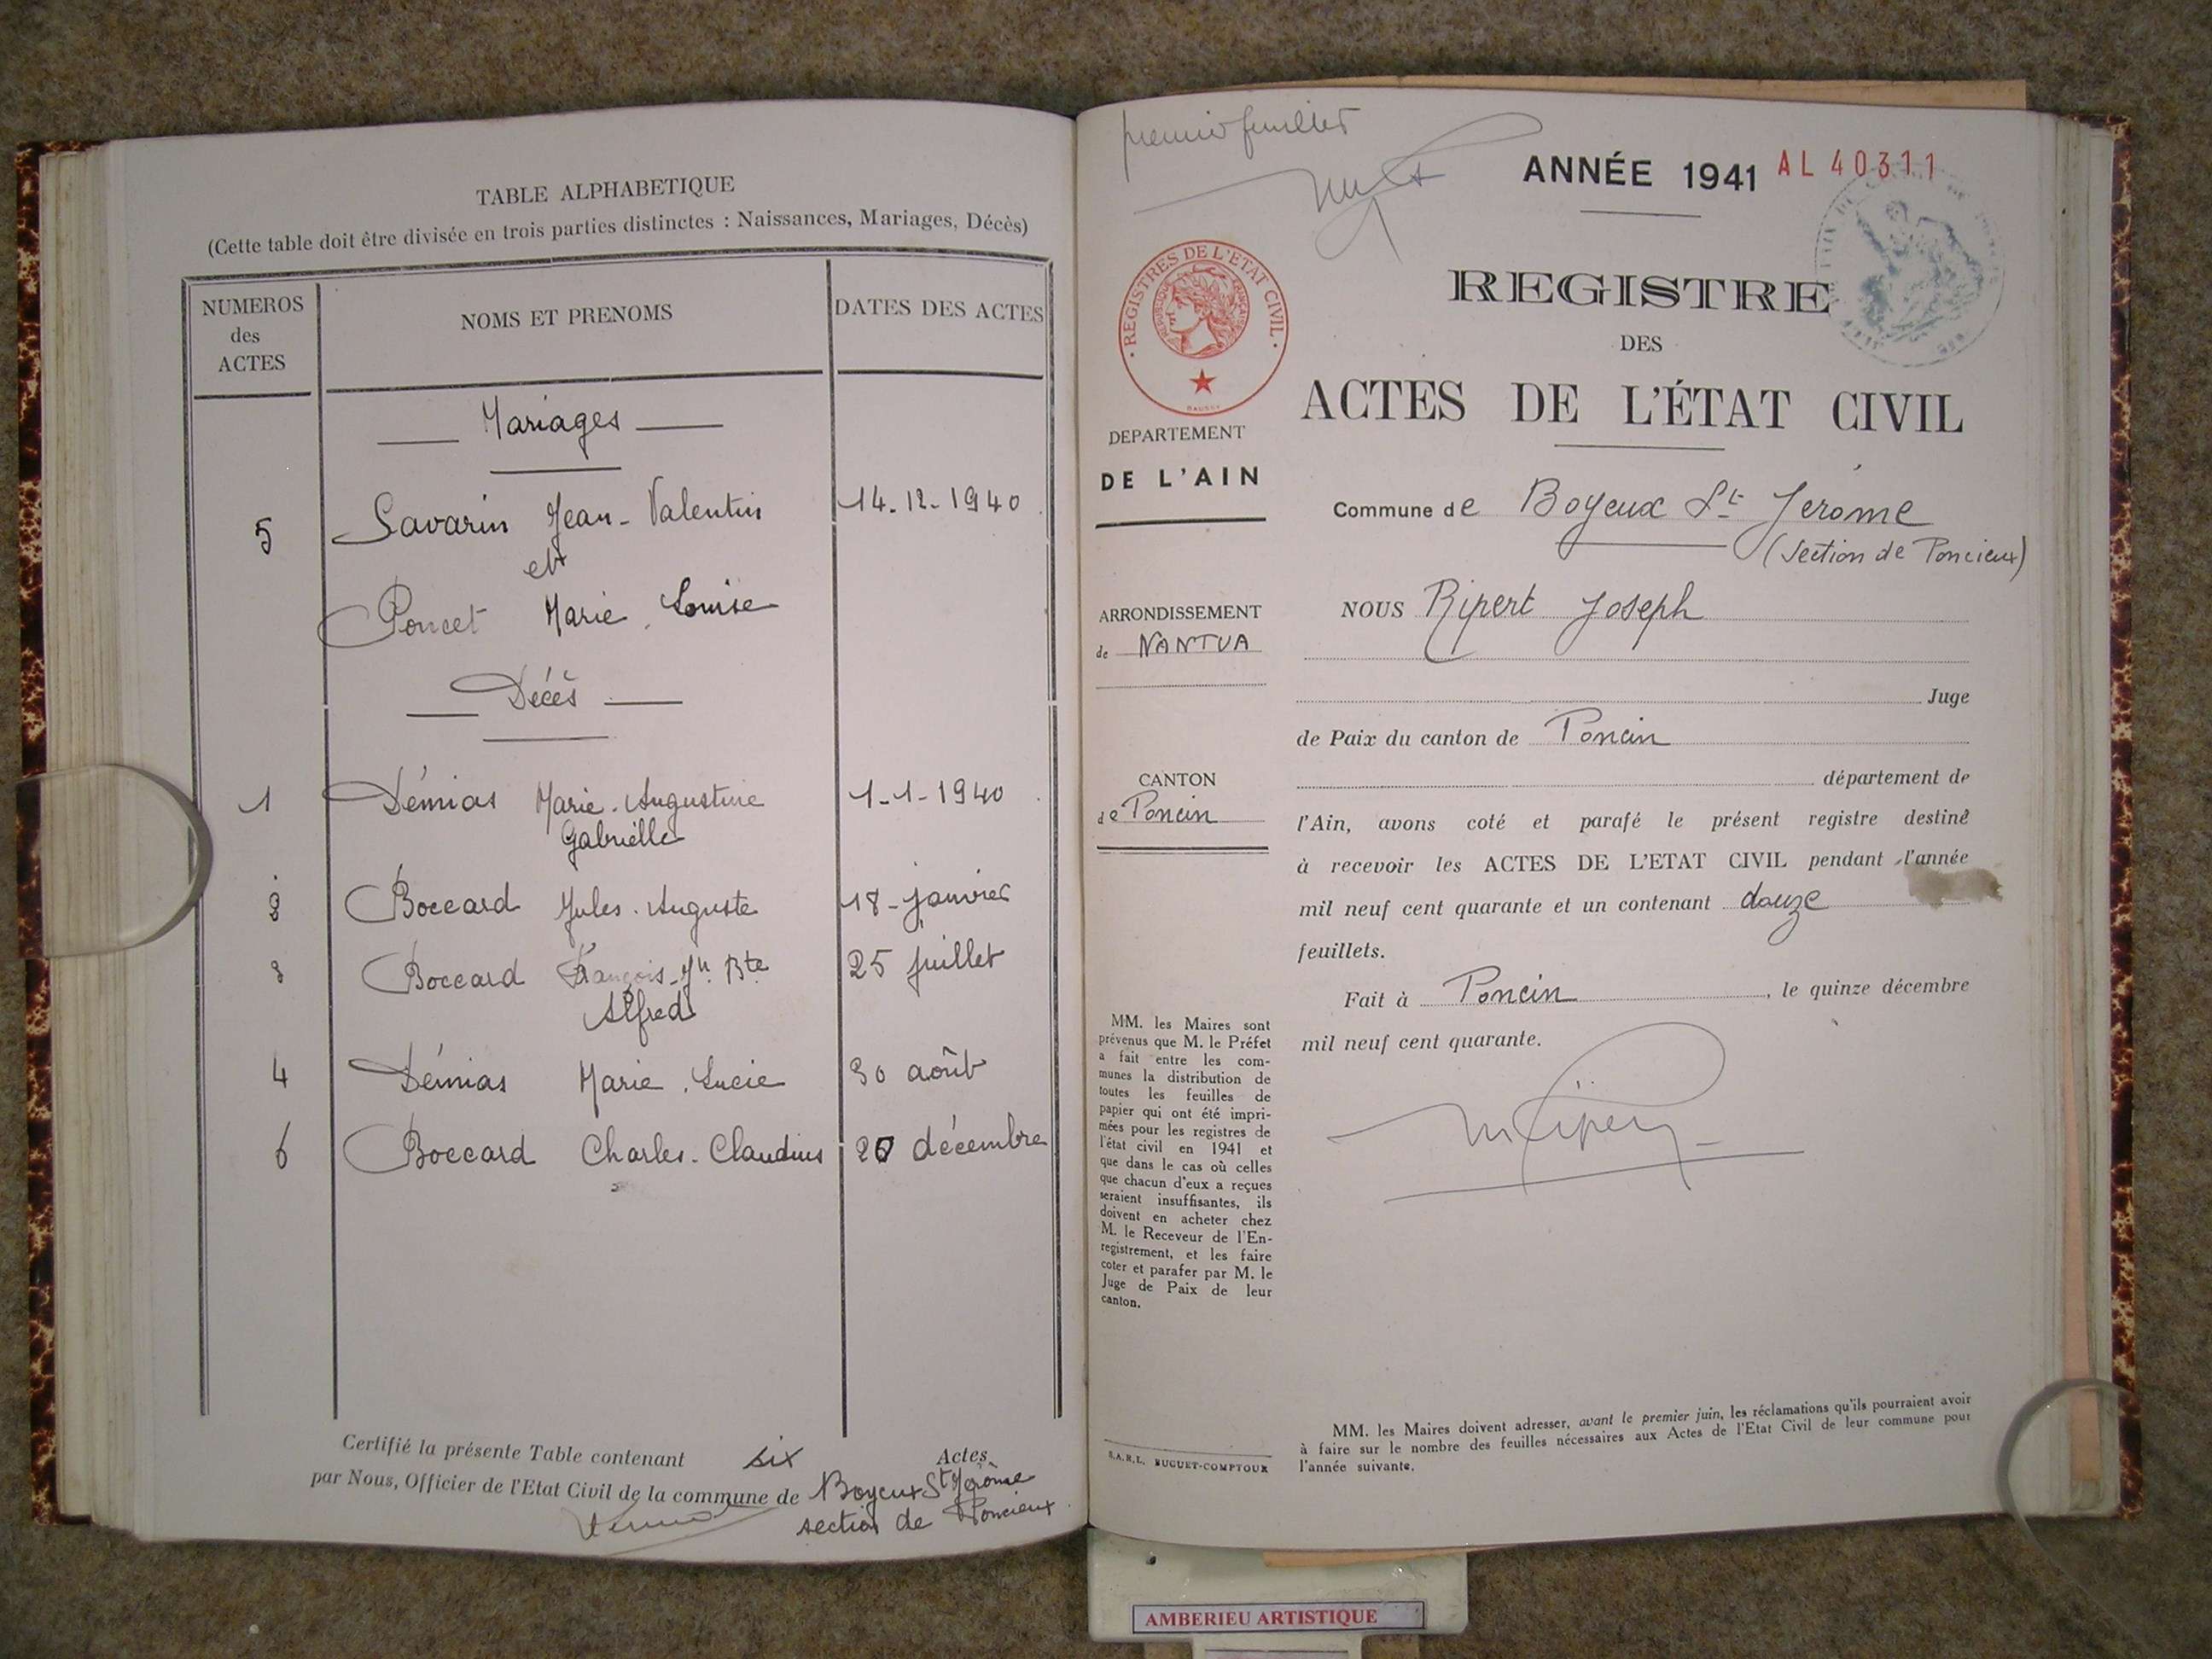 TABLE ALPHABETIQUE
(Cette table doit être divisée en trois parties distinctes : Naissances, Mariages, Décès)
NUMEROS
des
ACTES
NOMS ET PRENOMS
DATES DES ACTES
Mariages
5 Savarin Jean-Valentin 14.12-1940
et
Poncet Marie Louise
Décès
1 Démias Marie-Augustine 1-1-1940
Gabrielle
2 Boccard Jules-Auguste 18-janvier
3 Boccard François-Jn Bte 25 juillet
Alfred
4 Démias Marie Lucie 30 août
6 Boccard Charles-Claudius 20 décembre
Certifié la présente Table contenant six Actes
par Nous, Officier de l'Etat Civil de la commune de Boyeux St Jérôme
section de Poncieux
premier feuillet
ANNÉE 1941 AL 40311
REGISTRES DE L'ETAT CIVIL
REPUBLIQUE FRANÇAISE
REGISTRE
DES
ACTES DE L'ÉTAT CIVIL
DEPARTEMENT
DE L'AIN
Commune de Boyeux St Jerome
(Section de Poncieux)
ARRONDISSEMENT
de NANTUA
NOUS Ripert Joseph
Juge
de Paix du canton de Poncin
CANTON
de Poncin
département de
l'Ain, avons coté et parafé le présent registre destiné
à recevoir les ACTES DE L'ETAT CIVIL pendant l'année
mil neuf cent quarante et un contenant douze
feuillets.
Fait à Poncin, le quinze décembre
mil neuf cent quarante.
MM. les Maires sont
prévenus que M. le Préfet
a fait entre les com-
munes la distribution de
toutes les feuilles de
papier qui ont été impri-
mées pour les registres de
l'état civil en 1941 et
que dans le cas où celles
que chacun d'eux a reçues
seraient insuffisantes, ils
doivent en acheter chez
M. le Receveur de l'En-
registrement, et les faire
coter et parafer par M. le
Juge de Paix de leur
canton.
S.A.R.L. BUGUET-COMPTOUR
MM. les Maires doivent adresser, avant le premier juin, les réclamations qu'ils pourraient avoir
à faire sur le nombre des feuilles nécessaires aux Actes de l'Etat Civil de leur commune pour
l'année suivante.
AMBERIEU ARTISTIQUE